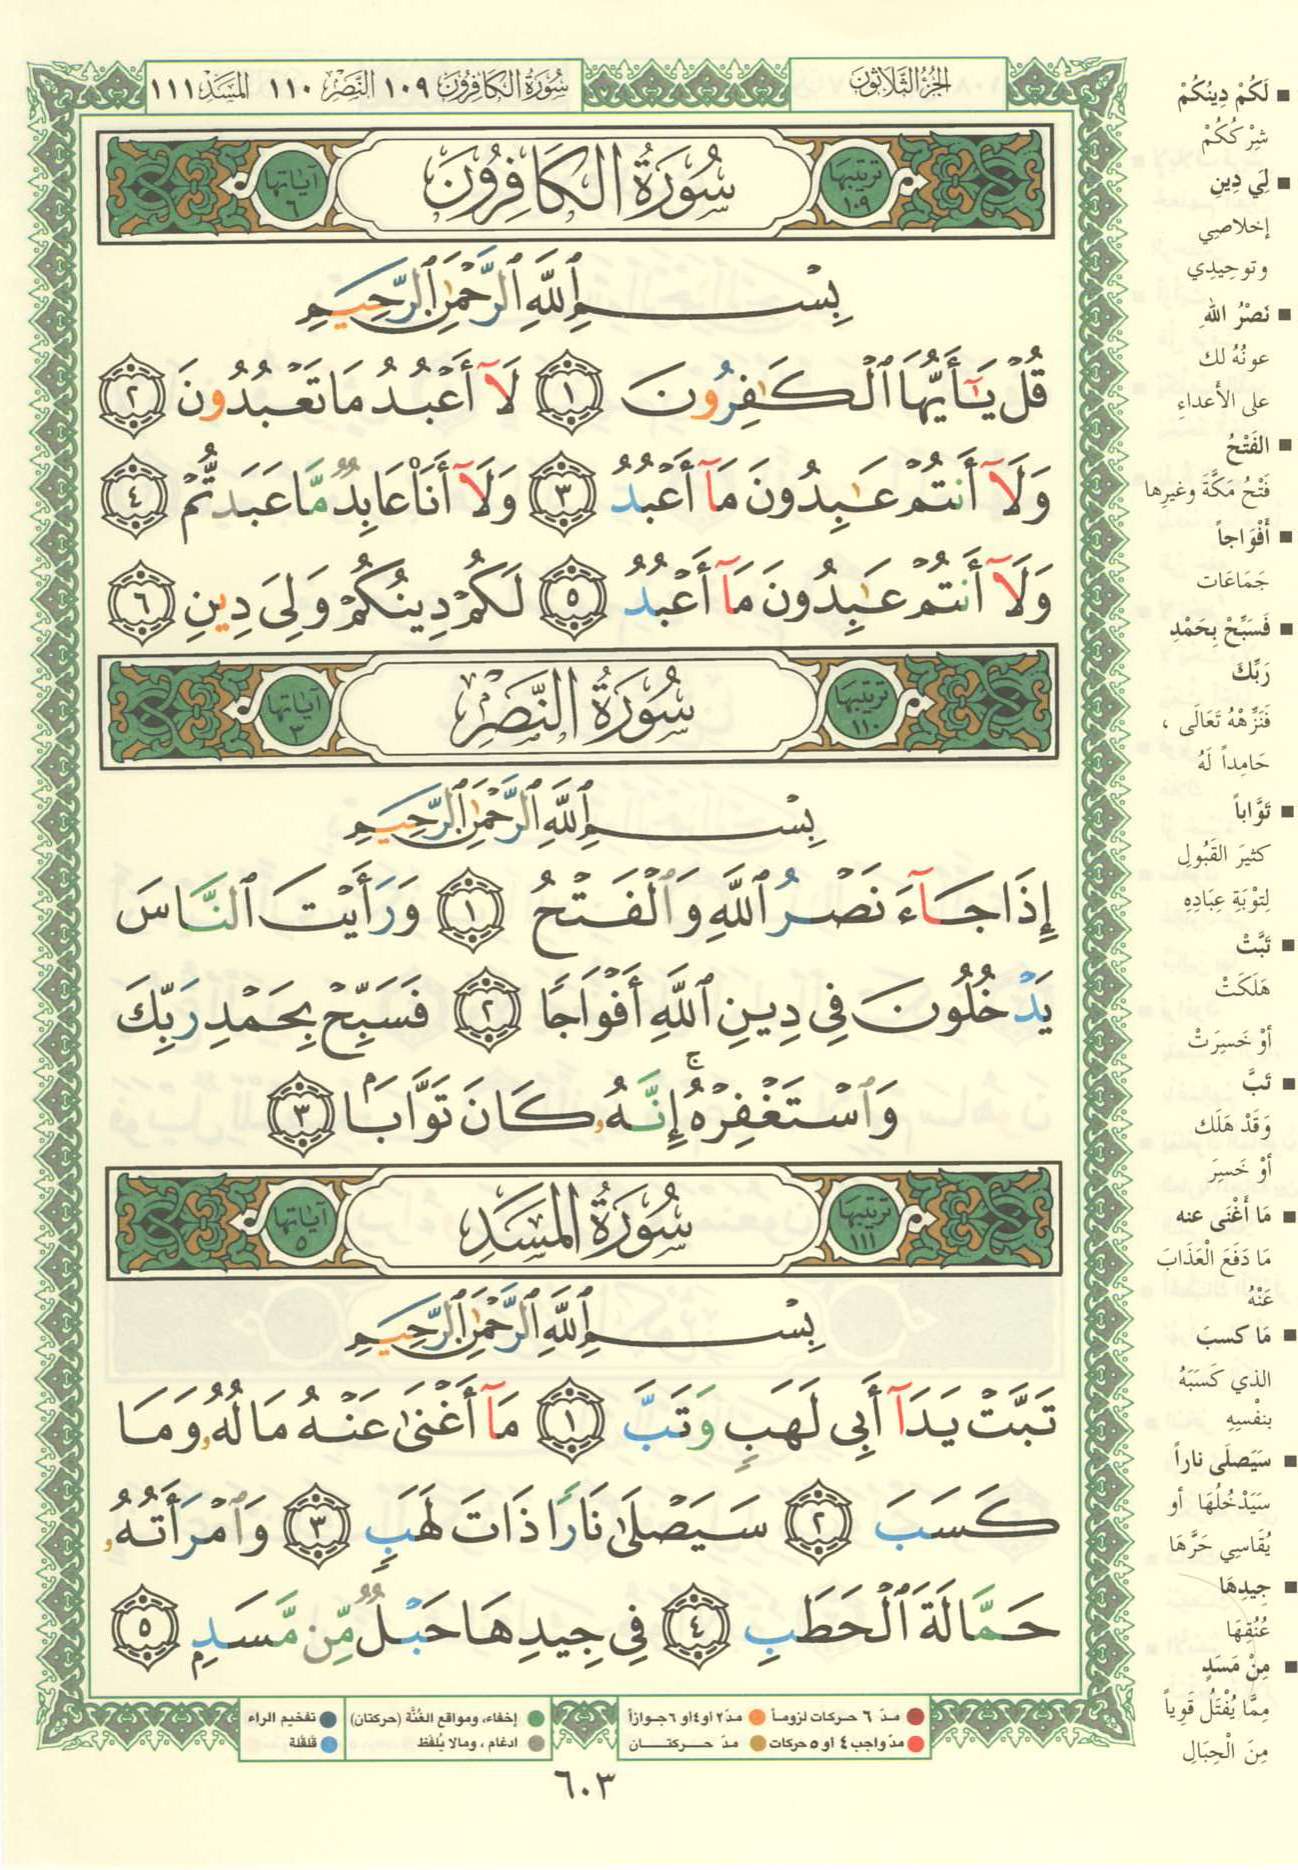 الجزء الثلاثون
سورة الكافرون ١٠٩ النصر ١١٠ المسد ١١١
ترتيبها ١٠٩
سُورَةُ الكَافِرُون
آياتها ٦
بِسْمِ ٱللَّهِ ٱلرَّحْمَٰنِ ٱلرَّحِيمِ
قُلْ يَٰٓأَيُّهَا ٱلْكَٰفِرُونَ ١ لَآ أَعْبُدُ مَا تَعْبُدُونَ ٢
وَلَآ أَنتُمْ عَٰبِدُونَ مَآ أَعْبُدُ ٣ وَلَآ أَنَا۠ عَابِدٌ مَّا عَبَدتُّمْ ٤
وَلَآ أَنتُمْ عَٰبِدُونَ مَآ أَعْبُدُ ٥ لَكُمْ دِينُكُمْ وَلِىَ دِينِ ٦
ترتيبها ١١٠
سُورَةُ النَّصْرِ
آياتها ٣
بِسْمِ ٱللَّهِ ٱلرَّحْمَٰنِ ٱلرَّحِيمِ
إِذَا جَآءَ نَصْرُ ٱللَّهِ وَٱلْفَتْحُ ١ وَرَأَيْتَ ٱلنَّاسَ
يَدْخُلُونَ فِى دِينِ ٱللَّهِ أَفْوَاجًا ٢ فَسَبِّحْ بِحَمْدِ رَبِّكَ
وَٱسْتَغْفِرْهُ ۚ إِنَّهُۥ كَانَ تَوَّابًۢا ٣
ترتيبها ١١١
سُورَةُ المَسَدِ
آياتها ٥
بِسْمِ ٱللَّهِ ٱلرَّحْمَٰنِ ٱلرَّحِيمِ
تَبَّتْ يَدَآ أَبِى لَهَبٍ وَتَبَّ ١ مَآ أَغْنَىٰ عَنْهُ مَالُهُۥ وَمَا
كَسَبَ ٢ سَيَصْلَىٰ نَارًا ذَاتَ لَهَبٍ ٣ وَٱمْرَأَتُهُۥ
حَمَّالَةَ ٱلْحَطَبِ ٤ فِى جِيدِهَا حَبْلٌ مِّن مَّسَدٍ ٥
■ لَكُمْ دِينُكُمْ
شِرْكُكُمْ
■ لِيَ دِينِ
إخلاصِي
وتوحِيدِي
■ نَصْرُ اللهِ
عونُهُ لك
على الأعداءِ
■ الفَتْحُ
فَتْحُ مَكَّةَ وغيرِها
■ أَفْوَاجاً
جَمَاعَات
■ فَسَبِّحْ بِحَمْدِ
رَبِّكَ
فَنَزِّهْهُ تَعَالَى ،
حَامِداً لَهُ
■ تَوَّاباً
كثيرَ القَبُولِ
لِتوْبَةِ عِبَادِهِ
■ تَبَّتْ
هَلَكَتْ
أوْ خَسِرَتْ
■ تَبَّ
وَقَدْ هَلَك
أوْ خَسِرَ
■ مَا أَغْنَى عنه
مَا دَفَعَ الْعَذَابَ
عَنْهُ
■ مَا كسبَ
الذي كَسَبَهُ
بنفْسِهِ
■ سَيَصلَى ناراً
سَيَدْخُلُهَا أو
يُقَاسِي حَرَّهَا
■ جِيدِهَا
عُنُقِهَا
■ مِنْ مَسَدٍ
مِمَّا يُفْتَلُ قوِياً
مِنَ الْحِبَالِ
● مدّ ٦ حركات لزوماً ● مدّ ٢ او ٤ او ٦ جوازاً
● مدّ واجب ٤ أو ٥ حركات ● مدّ حركتان
● إخفاء، ومواقع الغُنَّة (حركتان) ● تفخيم الراء
● ادغام ، ومالا يُلفَظ ● قلقلة
٦٠٣